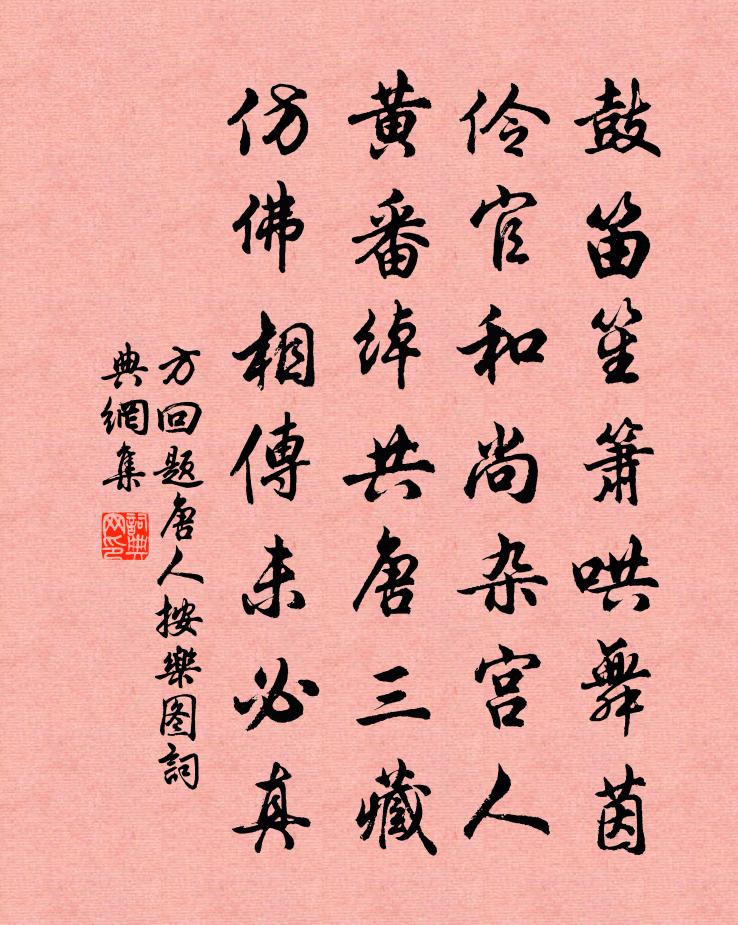 鼓笛笙箫哄舞茵
伶官和尚杂宫人
黄番绰共唐三藏
仿佛相傳未必真
方回题唐人按樂图詞
典網集
詞典网印